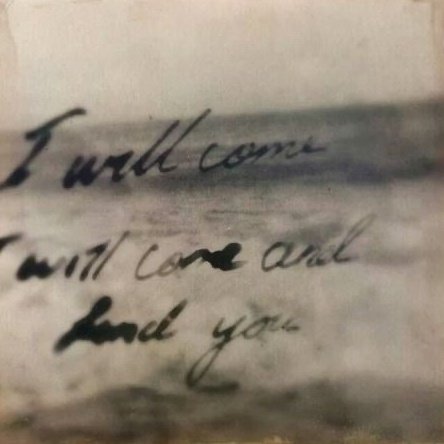 I will come
I will come and
you